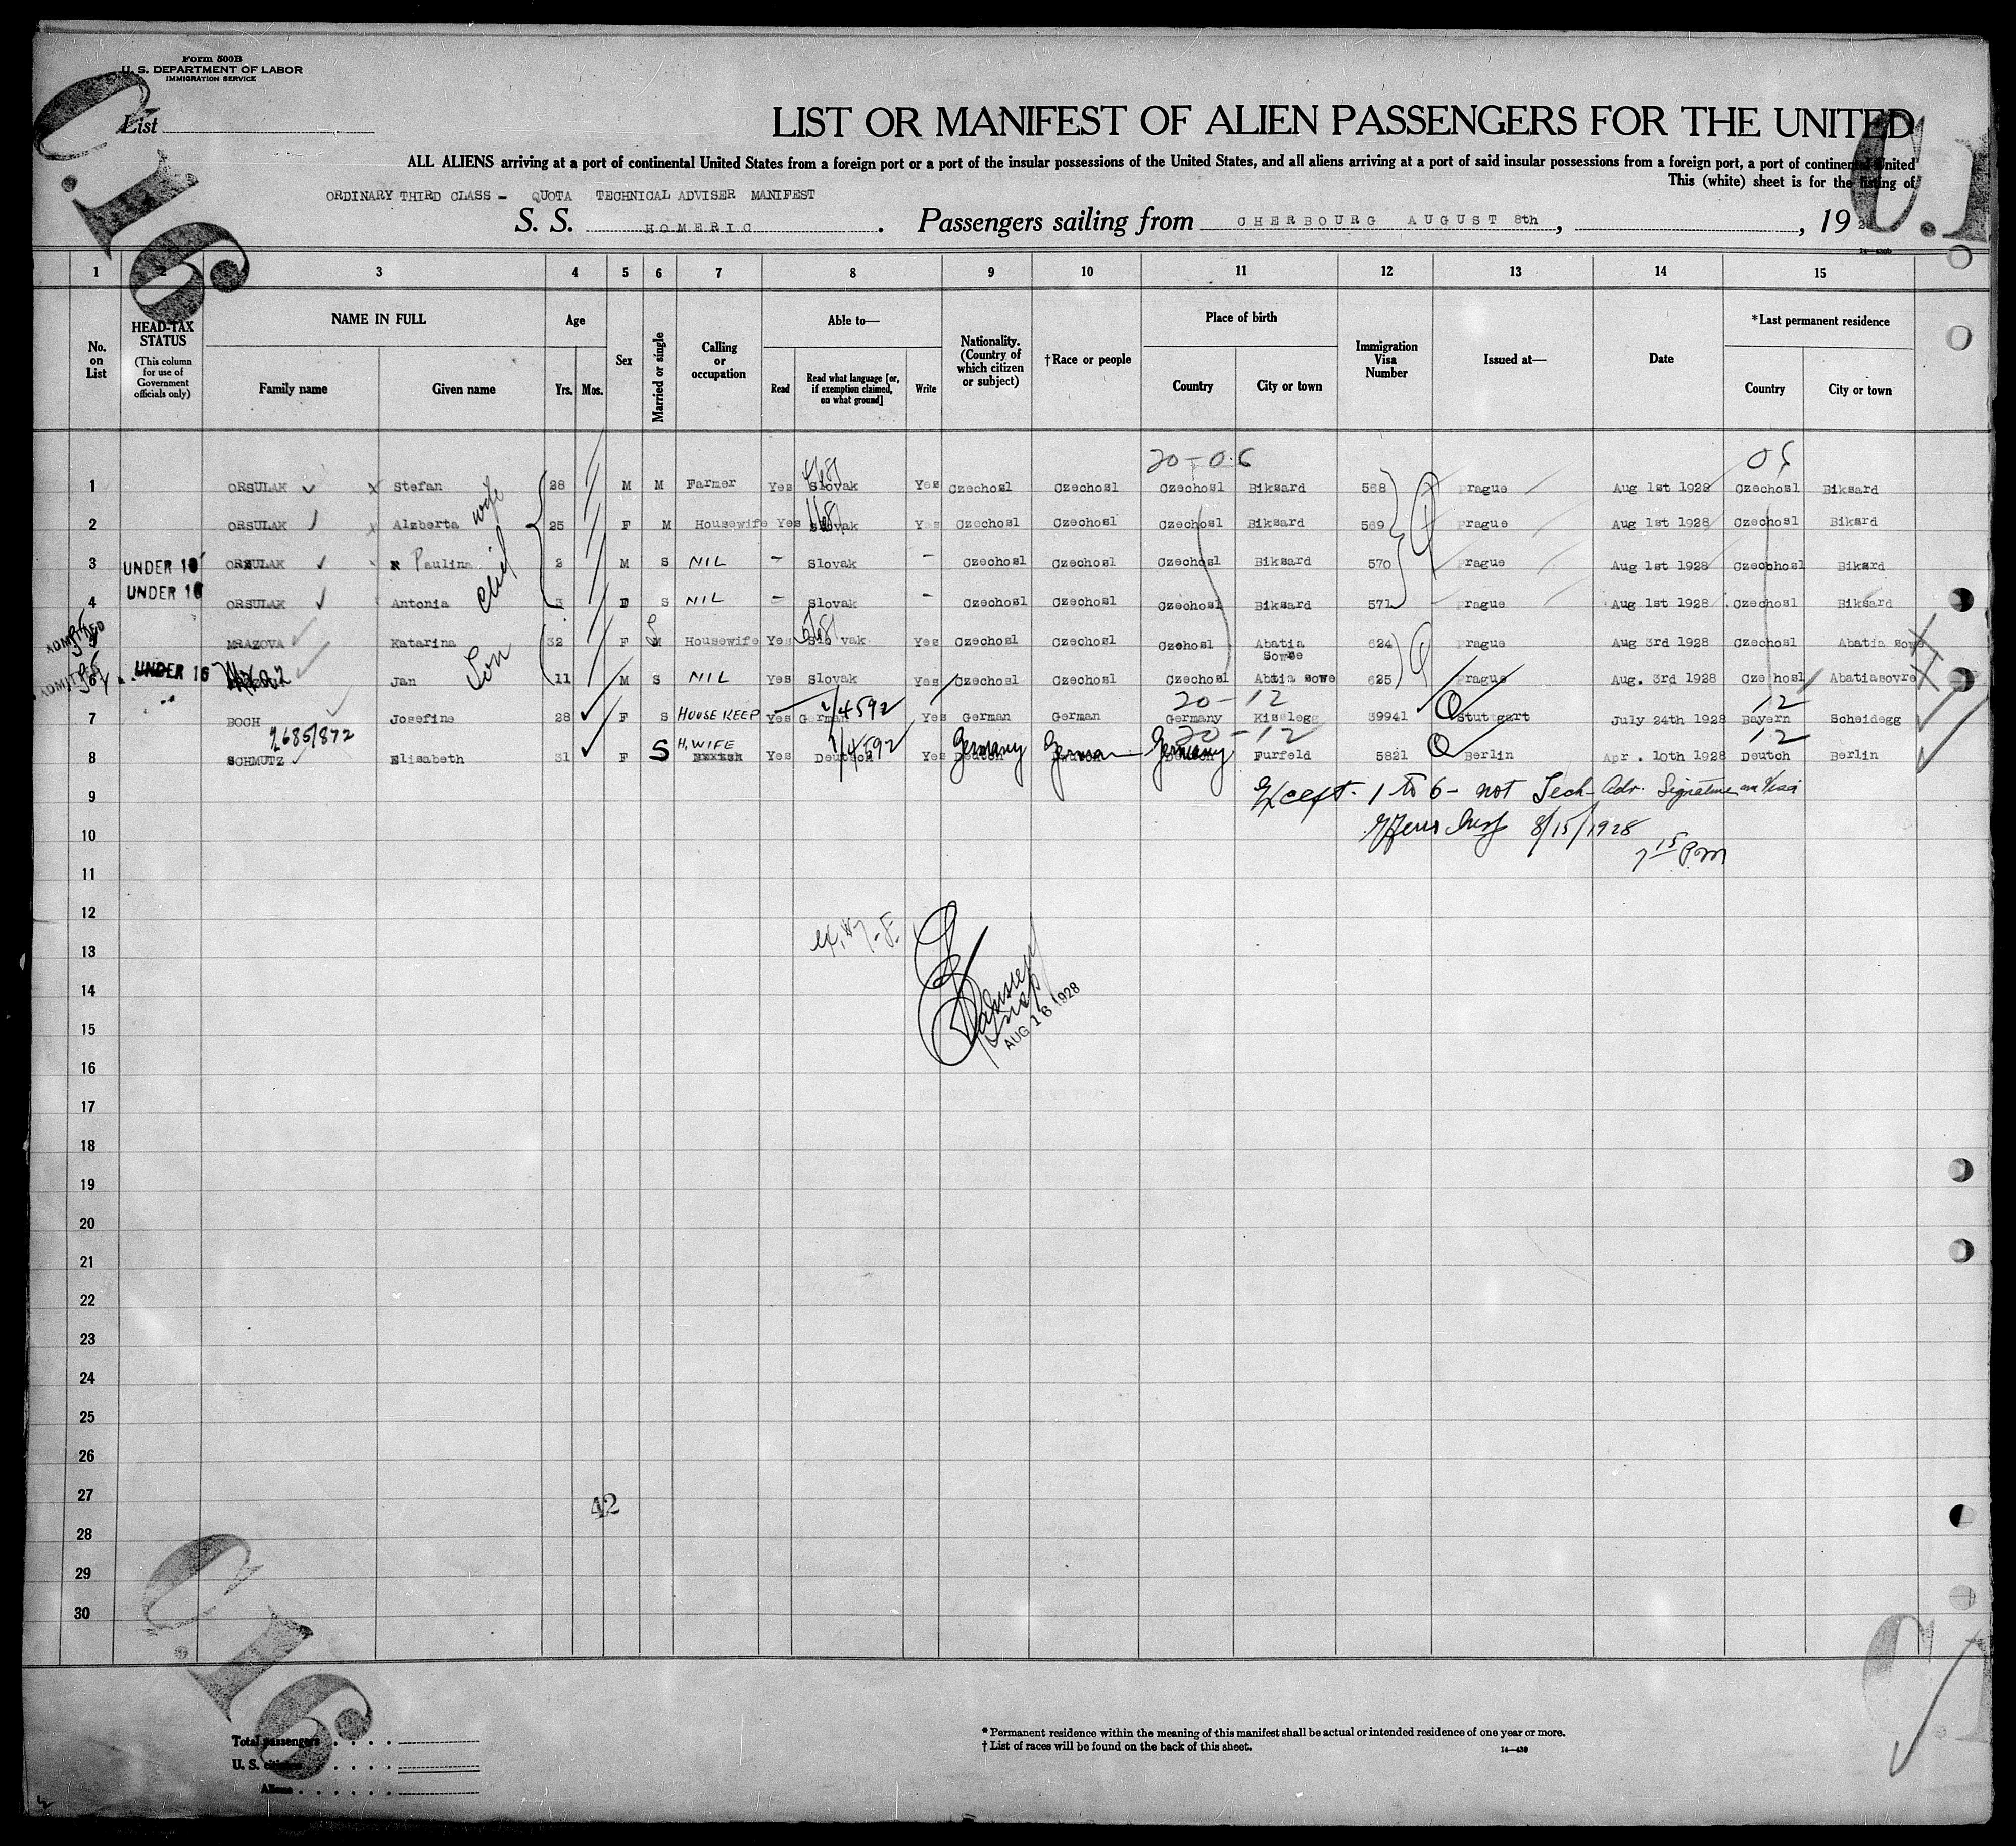 Form 500B
U. S. DEPARTMENT OF LABOR
IMMIGRATION SERVICE
C.16
C.1
List
LIST OR MANIFEST OF ALIEN PASSENGERS FOR THE UNITED
ALL ALIENS arriving at a port of continental United States from a foreign port or a port of the insular possessions of the United States, and all aliens arriving at a port of said insular possessions from a foreign port, a port of continental United
This (white) sheet is for the listing of
ORDINARY THIRD CLASS - QUOTA TECHNICAL ADVISER MANIFEST
S. S. HOMERIC. Passengers sailing from CHERBOURG AUGUST 8th, , 192
14-430b
1 2 3 4 5 6 7 8 9 10 11 12 13 14 15
No. on List
HEAD-TAX STATUS (This column for use of Government officials only)
NAME IN FULL Family name Given name
Age Yrs. Mos.
Sex
Married or single
Calling or occupation
Able to— Read Read what language [or, if exemption claimed, on what ground] Write
Nationality. (Country of which citizen or subject)
†Race or people
Place of birth Country City or town
Immigration Visa Number
Issued at—
Date
*Last permanent residence Country City or town
20-06 05
1 ORSULAK x Stefan 28 M M Farmer Yes Slovak Yes Czechosl Czechosl Czechosl Biksard 568 Prague Aug 1st 1928 Czechosl Biksard
2 ORSULAK x Alzberta wife 25 F M Housewife Yes Slovak Yes Czechosl Czechosl Czechosl Biksard 569 Prague Aug 1st 1928 Czechosl Biksard
3 UNDER 16 ORSULAK x Paulina 2 M S NIL - Slovak - Czechosl Czechosl Czechosl Biksard 570 Prague Aug 1st 1928 Czechosl Biksrd
4 UNDER 16 ORSULAK Antonia 3 S NIL - Slovak - Czechosl Czechosl Czechosl Biksard 571 Prague Aug 1st 1928 Czechosl Biksard
ADMITTED 5 MRAZOVA Katarina 32 F M Housewife Yes Slo vak Yes Czechosl Czechosl Czchosl Abatia Sowse 624 Prague Aug 3rd 1928 Czechosl Abatia sowe
ADMITTED 6 UNDER 16 Jan Son 11 M S NIL Yes Slovak Yes Czechosl Czechosl Czechosl Abtia sowe 625 Prague Aug. 3rd 1928 Czechosl Abatiasovre
2/4592 20-12 12
7 BOCH Josefine 28 F S HOUSEKEEP Yes German Yes German German Germany Kisslegg 39941 Stuttgart July 24th 1928 Bayern Scheidegg
2685/872 H. WIFE 1/4592 20-12 12
8 SCHMUTZ Elisabeth 31 F S Yes Deutsch Yes Germany German Germany Furfeld 5821 Berlin Apr. 10th 1928 Deutch Berlin
9
Except 1 to 6 - not Tech Adv. Signature on Visa
10
8/15/1928
7 15 P.m
11
12
13
14
15
AUG 16 1928
16
17
18
19
20
21
22
23
24
25
26
27
42
28
29
30
C.16
C.1
Total passengers
U. S. citizens
Aliens
* Permanent residence within the meaning of this manifest shall be actual or intended residence of one year or more.
† List of races will be found on the back of this sheet.
14-430